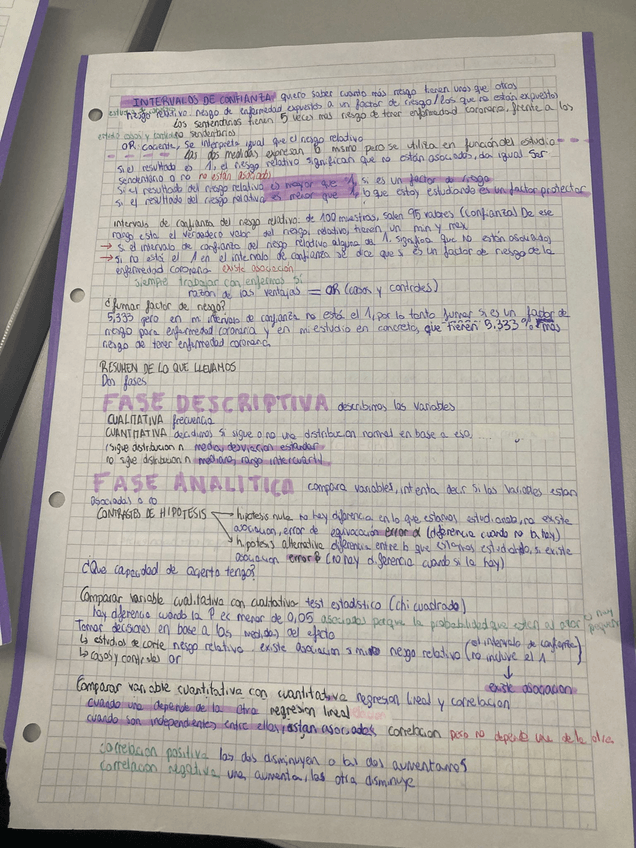 INTERVALOS DE CONFIANZA quiero saber cuanto más riesgo tienen unos que otros
Riesgo relativo: riesgo de enfermedad expuestos a un factor de riesgo/los que no están expuestos
los sendentarios tienen 5 veces más riesgo de tener enfermedad coronaria, frente a los
estudio casos y controles no sendentarios
OR: cociente, se interpreta igual que el riesgo relativo
las dos medidas expresan lo mismo pero se utiliza en función del estudio
si el resultado es 1, el riesgo relativo significan que no están asociados, da igual ser
sendentario o no no están asociados
si el resultado del riesgo relativo es mayor que 1, si es un factor de riesgo
si el resultado del riesgo relativo es menor que 1, lo que estoy estudiando es un factor protector
Intervalo de confianza del riesgo relativo: de 100 muestras, salen 95 valores (confianza) De ese
rango está el verdadero valor del riesgo relativo, tienen un min y max
→ si el intervalo de confianza del riesgo relativo alguna es 1, significa que no están asociados
→ si no está el 1 en el intervalo de confianza se dice que si es un factor de riesgo de la
enfermedad coronaria existe asociación
siempre trabajar con enfermos sí
razón de las ventajas = OR (casos y controles)
¿fumar factor de riesgo?
5,333 pero en mi intervalo de confianza no está el 1, por lo tanto fumar si es un factor de
riesgo para enfermedad coronaria y en mi estudio en concreto, que tienen 5,333 % más
riesgo de tener enfermedad coronaria
RESUMEN DE LO QUE LLEVAMOS
Dos fases
FASE DESCRIPTIVA describimos las variables
CUALITATIVA frecuencia
CUANTITATIVA decidimos si sigue o no una distribucion normal en base a eso,
sigue distribucion n media, desviacion estandar
no sigue distribucion n mediana, rango intercuartil
FASE ANALITICA compara variables, intenta decir si las variables estan
asociadas o no
CONTRASTES DE HIPOTESIS hipotesis nula no hay diferencia en lo que estamos estudiando, no existe
asociacion, error de equivocación error α (diferencia cuando no la hay)
hipotesis alternativa diferencia entre lo que estamos estudiando, si existe
asociacion error β (no hay diferencia cuando si la hay)
¿Que capacidad de acierto tengo?
Comparar variable cualitativa con cualitativa test estadistico (chi cuadrado)
hay diferencia cuando la P es menor de 0,05 asociadas porque la probabilidad que esten al azar es muy
Tomar decisiones en base a las medidas del efecto
↳ estudios de corte riesgo relativo existe asociacion si miro riesgo relativo (el intervalo de confianza)
(no incluye el 1)
↳ casos y controles or
existe asociacion
Comparar variable cuantitativa con cuantitativa regresion lineal y correlacion
cuando una depende de la otra regresion lineal
cuando son independientes entre ellas, están asociadas correlacion pero no depende una de la otra
correlacion positiva las dos disminuyen o las dos aumentamos
correlacion negativa una aumenta, la otra disminuye